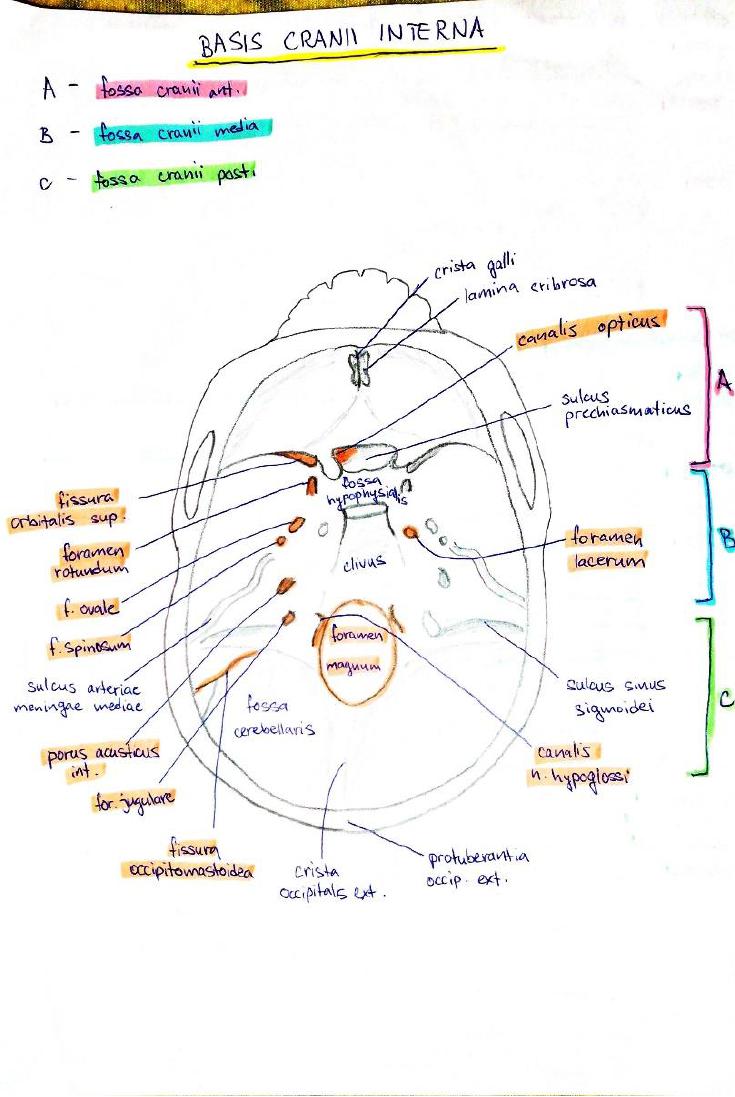 BASIS CRANII INTERNA
A - fossa cranii ant.
B - fossa cranii media
C - fossa cranii post.
crista galli
lamina cribrosa
canalis opticus
sulcus
prechiasmaticus
A
fissura
orbitalis sup.
fossa
hypophysialis
foramen
rotundum
foramen
lacerum
B
clivus
f. ovale
f. spinosum
foramen
magnum
sulcus arteriae
meningae mediae
sulcus sinus
sigmoidei
C
fossa
cerebellaris
porus acusticus
int.
canalis
n. hypoglossi
for. jugulare
fissura
occipitomastoidea
crista
occipitals ext.
protuberantia
occip. ext.